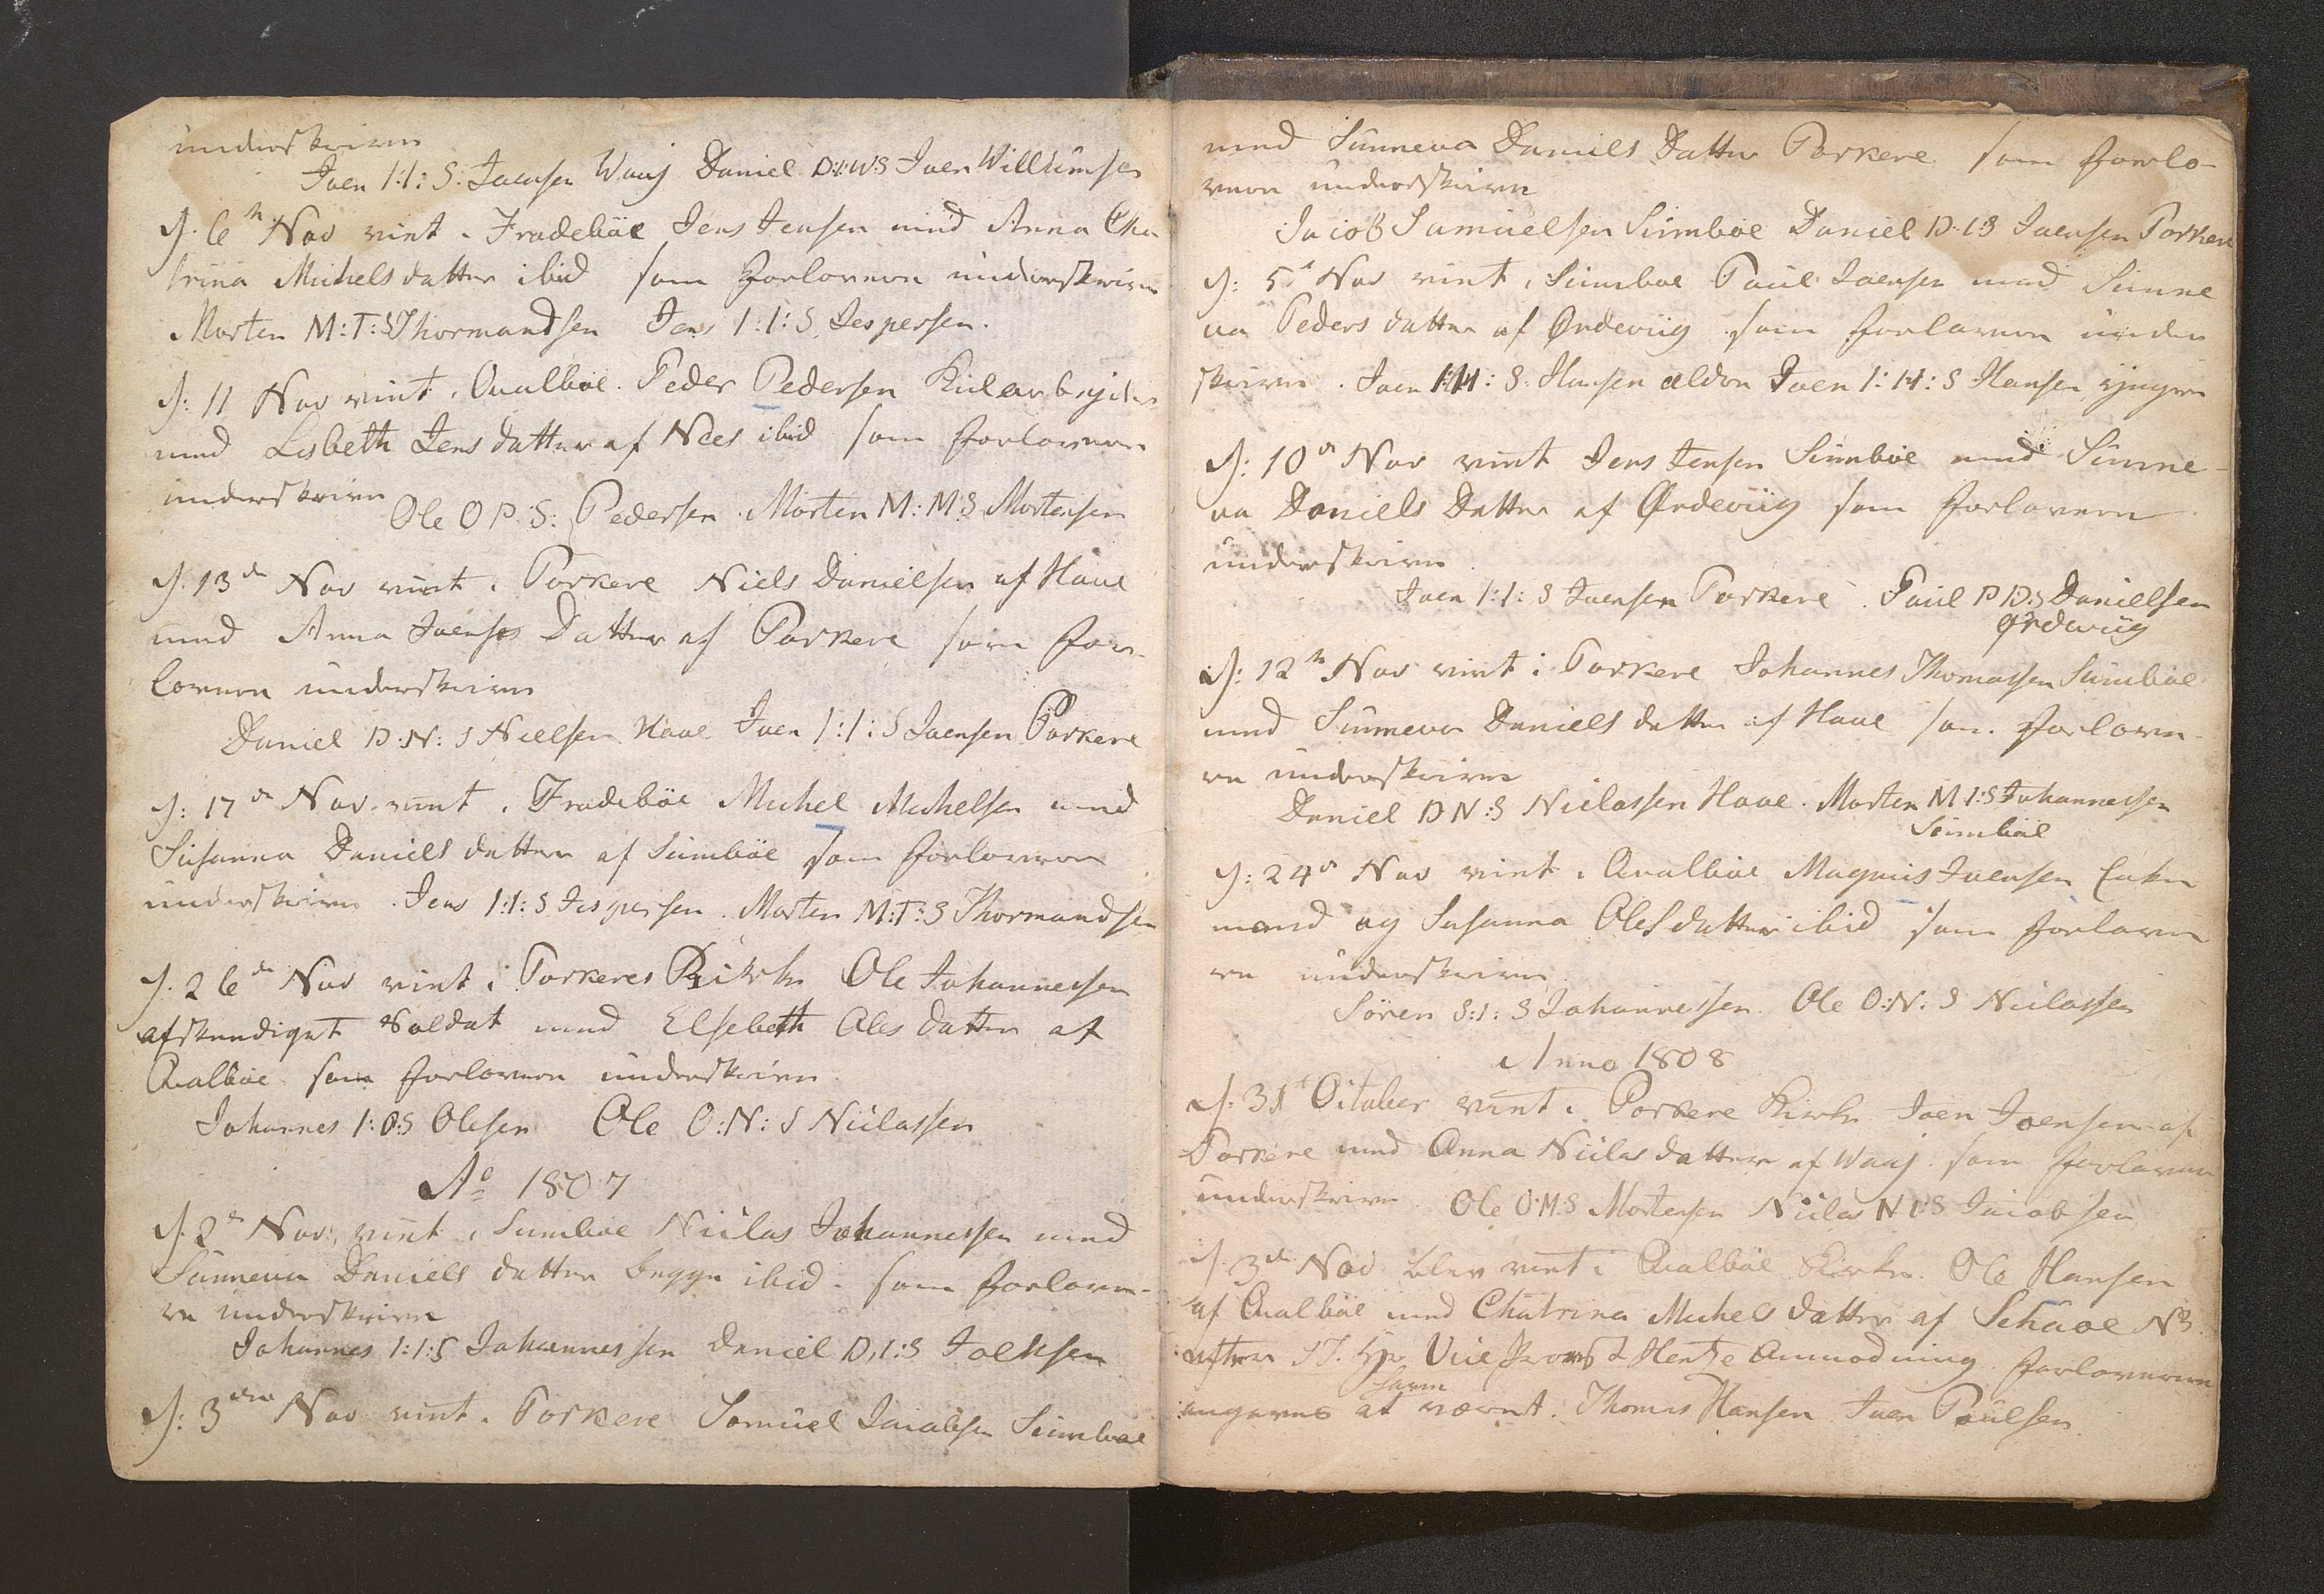 underskriver
Joen I:I:S: Joensen Waaj Daniel D:I:W:S Joen Willumsen
d. 6te Nov viet i Frodeböe Jens Jensen med Anna Cha
trina Michelsdatter ibid som Forlovere underskriver
Morten M:T:S Thormandsen Jens I:I:S Jespersen.
d: 11 Nov viet i Qualböe Peder Pedersen
med Lisbeth Jensdatter af Nees ibid som Forlovere
underskriver
Ole O P:S: Pedersen. Morten M:M:S Mortensen
d. 13de Nov viet i Porkere Niels Danielsen af Haue
med Anna Joenses Datter af Porkere som For-
lovere underskriver
Daniel D:N:S Nielsen Haue Joen I:I:S Joensen Porkere
d: 17de Nov. viet i Frodeböe Michel Michelsen med
Susanna Daniels datter af Sumböe som Forlovere
underskriver. Jens I:I:S Jespersen. Morten M:T:S Thormandsen
d. 26de Nov viet i Porkeres Kirke Ole Johannessen
afskendiget Soldat med Elsebeth Oles datter af
Qualböe som Forlovere underskriver
Johannes I:O:S Olesen Ole O:N:S Niclassen
Ao 1807
d. 2de Nov: viet i Sumböe Niclas Johannessen med
Sunneva Daniels datter begge ibid. som Forlove-
re underskriver
Johannes I:I:S Johannessen Daniel D,I:S Joensen
d: 3die Nov viet i Porkere Samuel Jacobsen Sumböe
med Sunneva Daniels Datter Porkere som Forlo-
vere underskriver
Jacob Samuelsen Sumböe Daniel D.I:S Joensen Porkere
d: 5te Nov viet i Sumböe Poul Joensen med Sunne
va Peders datter af Ördeviig som Forlovere under
skriver. Joen I:H:S: Hansen ældre Joen I:H:S Hansen yngre
d: 10de Nov viet Jens Jensen Sumböe med Sunne-
va Daniels Datter af Ördeviig som Forlovere
underskriver.
Joen I:I:S Joensen Porkere. Poul P D:S Danielsen
Ördeviig
d: 12te Nov viet i Porkere Johannes Thomassen Sumböe
med Sunneva Daniels datter af Haue som Forlove-
re underskriver
Daniel D N:S Niclassen Haue. Morten M I:S Johannessen
Sumböe
d: 24de Nov viet i Qualböe Magnus Joensen Enke
mand og Susanna Olesdatter ibid som Forlove
re underskriver
Sören S:I:S Johannessen. Ole O:N:S Niclassen
Anno 1808
d. 31te October viet i Porkere Kirke Joen Joensen af
Porkere med Anna Niclas datter af Waaj som Forlovere
underskriver Ole O:M:S Mortensen Niclas N I:S Jacobsen
d. 3de Nov blev viet i Qualböe Kirke Ole Hansen
af Qualböe med Chatrina Michels datter af Schaae NB
efter Hr Vice Provst Hentze Anmodning. Forlovere
angaves at være Thomas Hansen Joen Poulsen